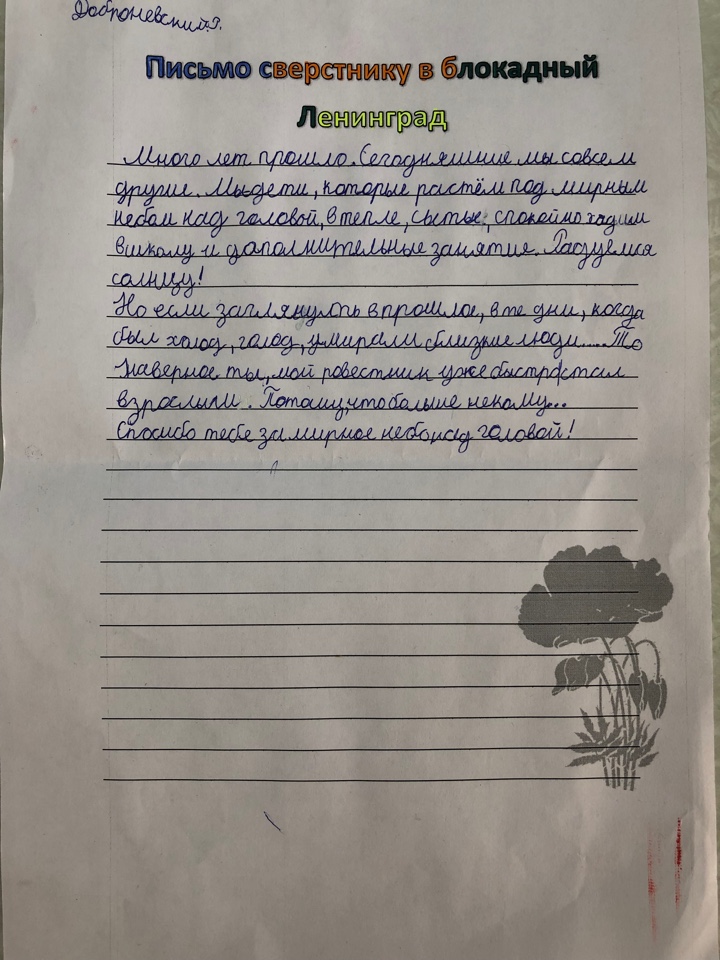 Доброневский Г.
Письмо сверстнику в блокадный
Ленинград
Много лет прошло. Сегодняшние мы совсем
другие. Мы дети, которые растём под мирным
небом над головой, в тепле, сытые, спокойно ходим
в школу и дополнительные занятия. Радуемся
солнцу!
Но если заглянуть в прошлое, в те дни, когда
был холод, голод, умирали близкие люди.... То
наверное ты, мой ровестник уже быстро стал
взрослым. Потому, что больше некому...
Спасибо тебе за мирное небо над головой!